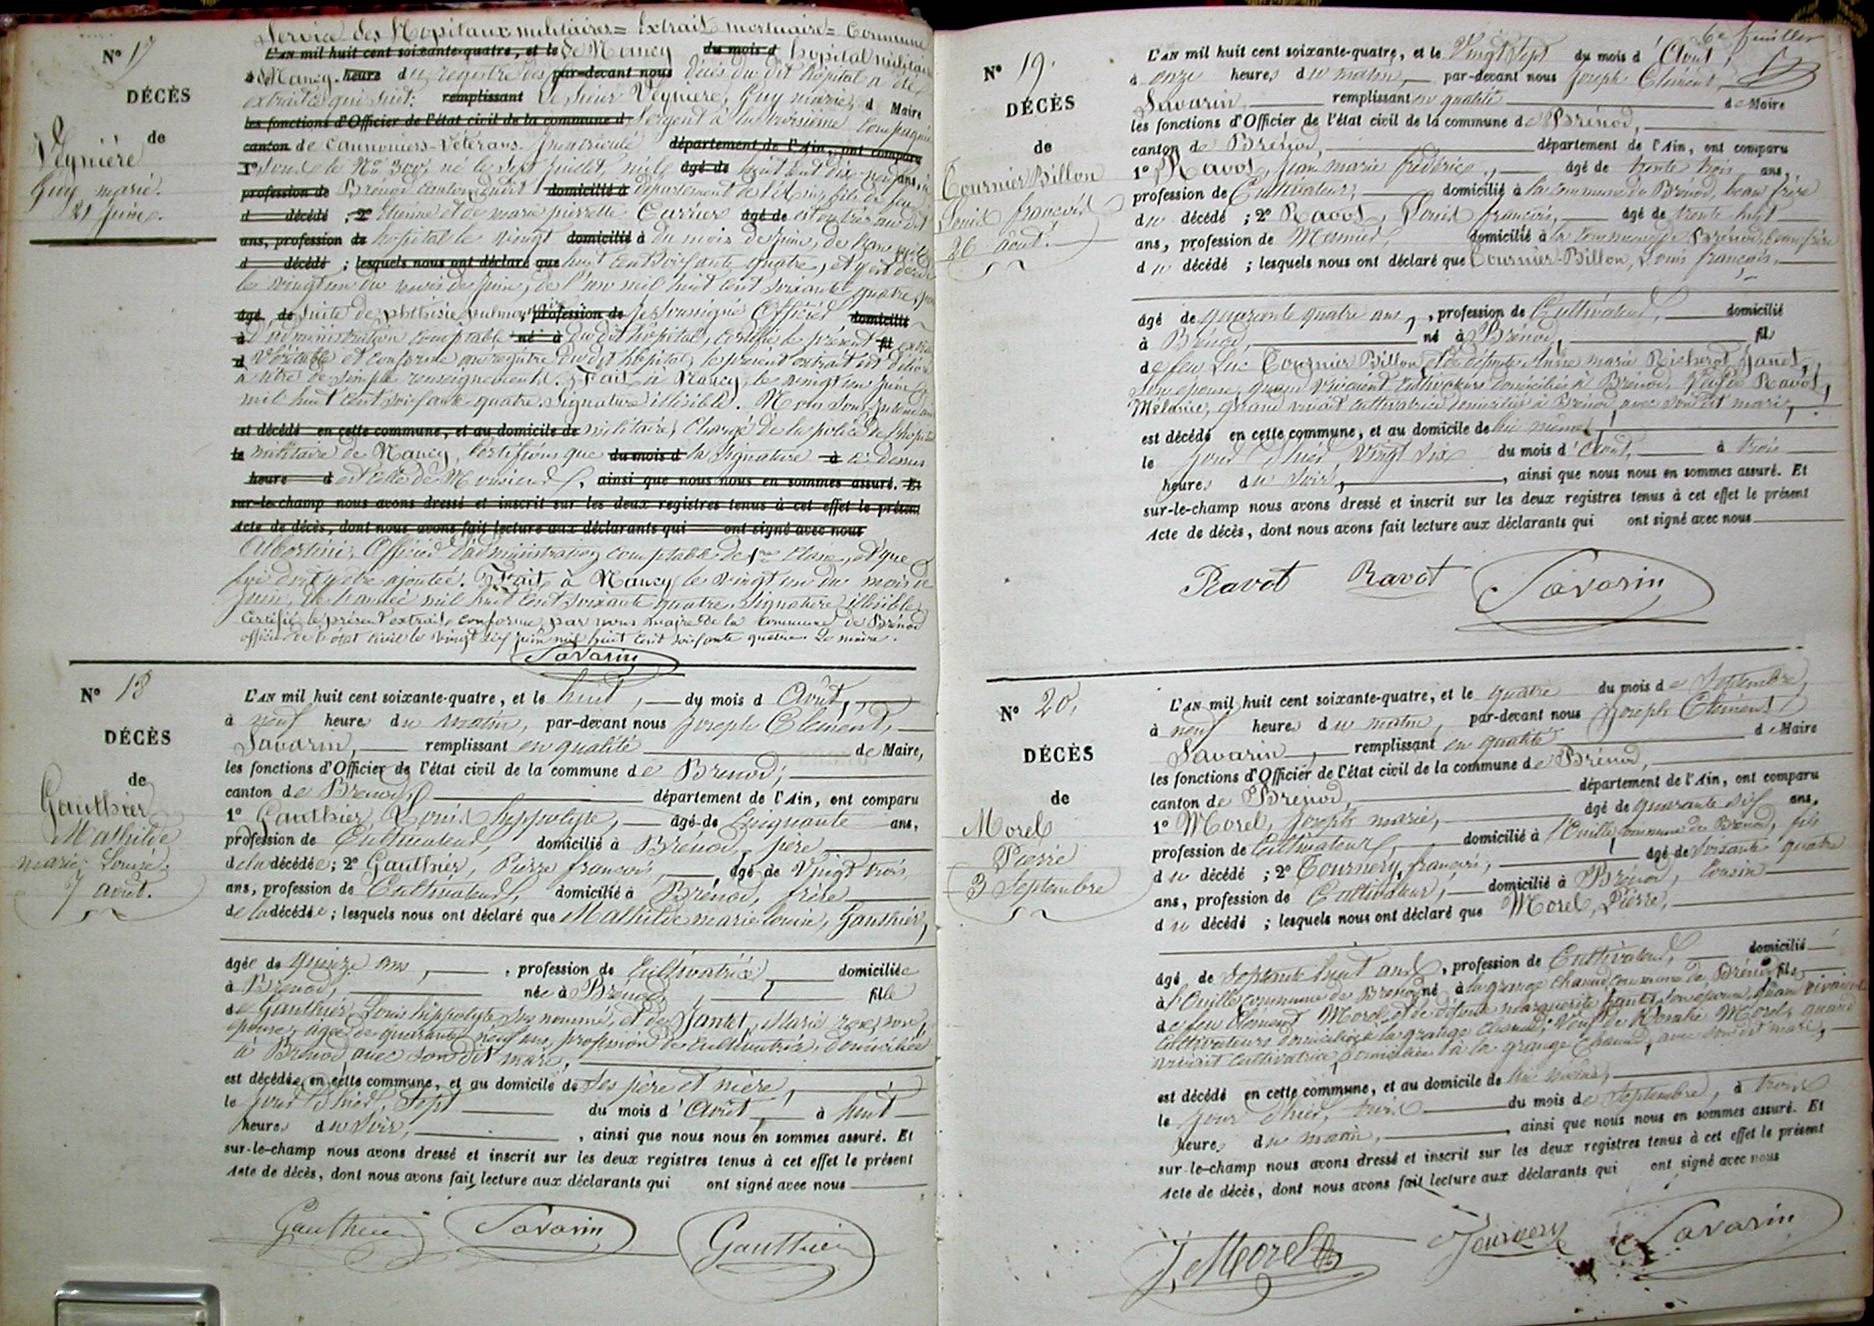 Service des Hopitaux militaires = Extrait mortuaire = Commune
N° 17
L'AN mil huit cent soixante-quatre, et le de Nancy du mois d hopital militaire
de Nancy. heure du registre des par-devant nous décès du dit hopital a été
extrait ce qui suit: remplissant Le sieur Veyniere, Guy marie, d Maire
DÉCÈS
les fonctions d'Officier de l'état civil de la commune d Sergent à la troisième Compagnie
de
canton de Cannoniers-Vétérans. matricule département de l'Ain, ont comparu
Veynière
1° sous le N° 300, né le sept juillet, mil âgé de huit cent dix-neuf ans, à
Guy marie.
profession de Brénod canton dudit domicilié à département de l'Ain, fils de feu
21 juin.
d décédé ; 2° Etienne et de marie pierrette Carrier âgé de est entré au dit
ans, profession de hopital le vingt domicilié à du mois de juin, de l'an mil
d décédé ; lesquels nous ont déclaré que huit cent soixante quatre, et y est décédé
le vingt un du mois de juin, de l'an mil huit cent soixante quatre, par
âgé de suite de phthisie pulmonaire profession de Je soussigné Officier domicilié
à d'administration comptable né à du dit hopital, certifie le présent fil extrait
d véritable et conforme au registre du dit hopital, le présent extrait est délivré
à titre de simple renseignement. Fait à Nancy, le vingt un juin
mil huit cent soixante-quatre. Signature illisible. Nous Sous Intendant
est décédé en cette commune, et au domicile de militaire, chargé de la police de l'hopital
le militaire de Nancy, certifions que du mois d la signature à ci dessus
heure d est celle de Monsieur, ainsi que nous nous en sommes assuré. Et
sur-le-champ nous avons dressé et inscrit sur les deux registres tenus à cet effet le présent
Acte de décès, dont nous avons fait lecture aux déclarants qui ont signé avec nous
Albertini, Officier d'administration comptable de 1re classe, et que
foi doit y être ajoutée. Fait à Nancy le vingt un du mois de
juin, de l'année mil huit cent soixante quatre. Signature illisible,
Certifié le présent extrait conforme par nous maire de la commune de Brénod
officier de l'état civil le vingt six juin mil huit cent soixante quatre. Le maire.
Savarin
N° 18
L'AN mil huit cent soixante-quatre, et le huit, du mois d Août,
à neuf heures du matin, par-devant nous Joseph Clément,
DÉCÈS
Savarin, remplissant en qualité de Maire,
les fonctions d'Officier de l'état civil de la commune de Brenod,
de
canton de Brenod, département de l'Ain, ont comparu
Gauthier
1° Gauthier Louis hippolyte, âgé de Cinquante ans,
Mathilde
profession de Cultivateur, domicilié à Brénod, père
marie, Louise.
de la décédée; 2° Gauthier, Pierre françois, âgé de Vingt trois
7 août.
ans, profession de Cultivateur, domicilié à Brénod, frère
de la décédée ; lesquels nous ont déclaré que Mathilde marie louise, Gauthier,
âgée de quinze ans, profession de Cultivatrice domiciliée
à Brénod, née à Brénod, fille
de Gauthier Louis hippolyte sus nommé, et de Janet, Marie rose, son
épouse, agée de quarante neuf ans, profession de cultivatrice, domiciliée
à Brénod avec son dit mari,
est décédée en cette commune, et au domicile de ses père et mère,
le jour d'hier, Sept du mois d'Août à huit
heures du soir, ainsi que nous nous en sommes assuré. Et
sur-le-champ nous avons dressé et inscrit sur les deux registres tenus à cet effet le présent
Acte de décès, dont nous avons fait lecture aux déclarants qui ont signé avec nous
Gauthier Savarin Gauthier
6e feuillet
N° 19.
L'AN mil huit cent soixante-quatre, et le Vingt Sept du mois d'Août,
à onze heures du matin, par-devant nous Joseph Clément,
DÉCÈS
Savarin remplissant en qualité de Maire
les fonctions d'Officier de l'état civil de la commune de Brénod,
de
canton de Brénod, département de l'Ain, ont comparu
Tournier Billon
1° Ravot, jean marie frédéric, âgé de trente trois ans,
profession de Cultivateur, domicilié à la commune de Brénod, beau frère
Louis françois
du décédé ; 2° Ravot, Louis françois, âgé de trente huit
26 août.
ans, profession de Meunier, domicilié à la commune de Brénod, beau frère
du décédé ; lesquels nous ont déclaré que Tournier-Billon, Louis françois,
âgé de quarante quatre ans, profession de Cultivateur, domicilié
à Brénod, né à Brénod, fils
de feu Luc Tournier Billon, et de défunte Anne marie Richerot Janet,
son epouse, quand vivaient cultivateurs domiciliés à Brénod. Veuf de Ravot,
Mélanie, quand vivait cultivatrice domiciliée à Brénod, avec son dit mari,
est décédé en cette commune, et au domicile de lui même,
le jour d'hier Vingt Six du mois d'Août, à trois
heures du soir, ainsi que nous nous en sommes assuré. Et
sur-le-champ nous avons dressé et inscrit sur les deux registres tenus à cet effet le présent
Acte de décès, dont nous avons fait lecture aux déclarants qui ont signé avec nous
Ravot Ravot Savarin
N° 20.
L'AN mil huit cent soixante-quatre, et le quatre du mois de Septembre,
à neuf heures du matin, par-devant nous Joseph Clément
DÉCÈS
Savarin, remplissant en qualité de Maire
les fonctions d'Officier de l'état civil de la commune de Brénod,
de
canton de Brénod, département de l'Ain, ont comparu
Morel
1° Morel, Joseph marie, âgé de quarante six ans,
Pierre
profession de Cultivateur, domicilié à l'Ouille commune de Brénod, fils
3 Septembre
du décédé ; 2° Tournery, françois, âgé de soixante quatre
ans, profession de Cultivateur, domicilié à Brénod, cousin
du décédé ; lesquels nous ont déclaré que Morel, Pierre,
âgé de Septante huit ans, profession de Cultivateur, domicilié
à l'Ouille commune de Brénod né à la grange chanud commune de Brénod fils
de feu Clément Morel, et de défunte marguerite son epouse, quand vivaient
cultivateurs domiciliés à la grange chanud, Veuf de Rosalie Morel, quand
vivait cultivatrice domiciliée à la grange chanud, avec son dit mari,
est décédé en cette commune, et au domicile de lui même,
le jour d'hier, trois du mois de Septembre, à trois
heures du matin, ainsi que nous nous en sommes assuré. Et
sur-le-champ nous avons dressé et inscrit sur les deux registres tenus à cet effet le présent
Acte de décès, dont nous avons fait lecture aux déclarants qui ont signé avec nous
J, Morel Tournery Savarin